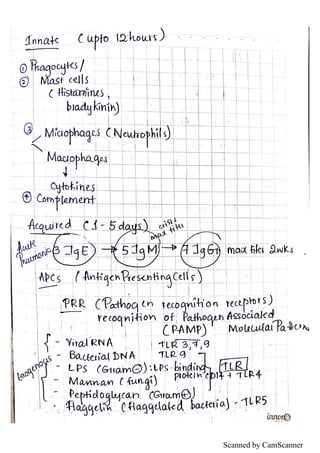 Innate (upto 12hours)
① Phagocytes/
② Mast cells
(Histamines,
bradykinin)
③ Microphages (Neutrophils)
Macrophages
↓
Cytokines
④ Complement
Acquired (1-5 days) crisis max titi
Acute 3 IgE → 5 IgM → 7 IgG max titi 2wks
APCs (Antigen Presenting Cells)
PRR (Pathogen recognition receptors)
recognition of Pathogen Associated
(PAMP) Molecular Pattern
Exogenous
- Viral RNA TLR 3,7,9
- Bacterial DNA TLR 9
- LPS (Gram⊖): LPS-binding TLR
- Mannan (fungi) protein CD14 + TLR4
- Peptidoglycan (Gram⊕)
- Flaggelin (flaggelated bacteria) - TLR5
Scanned by CamScanner